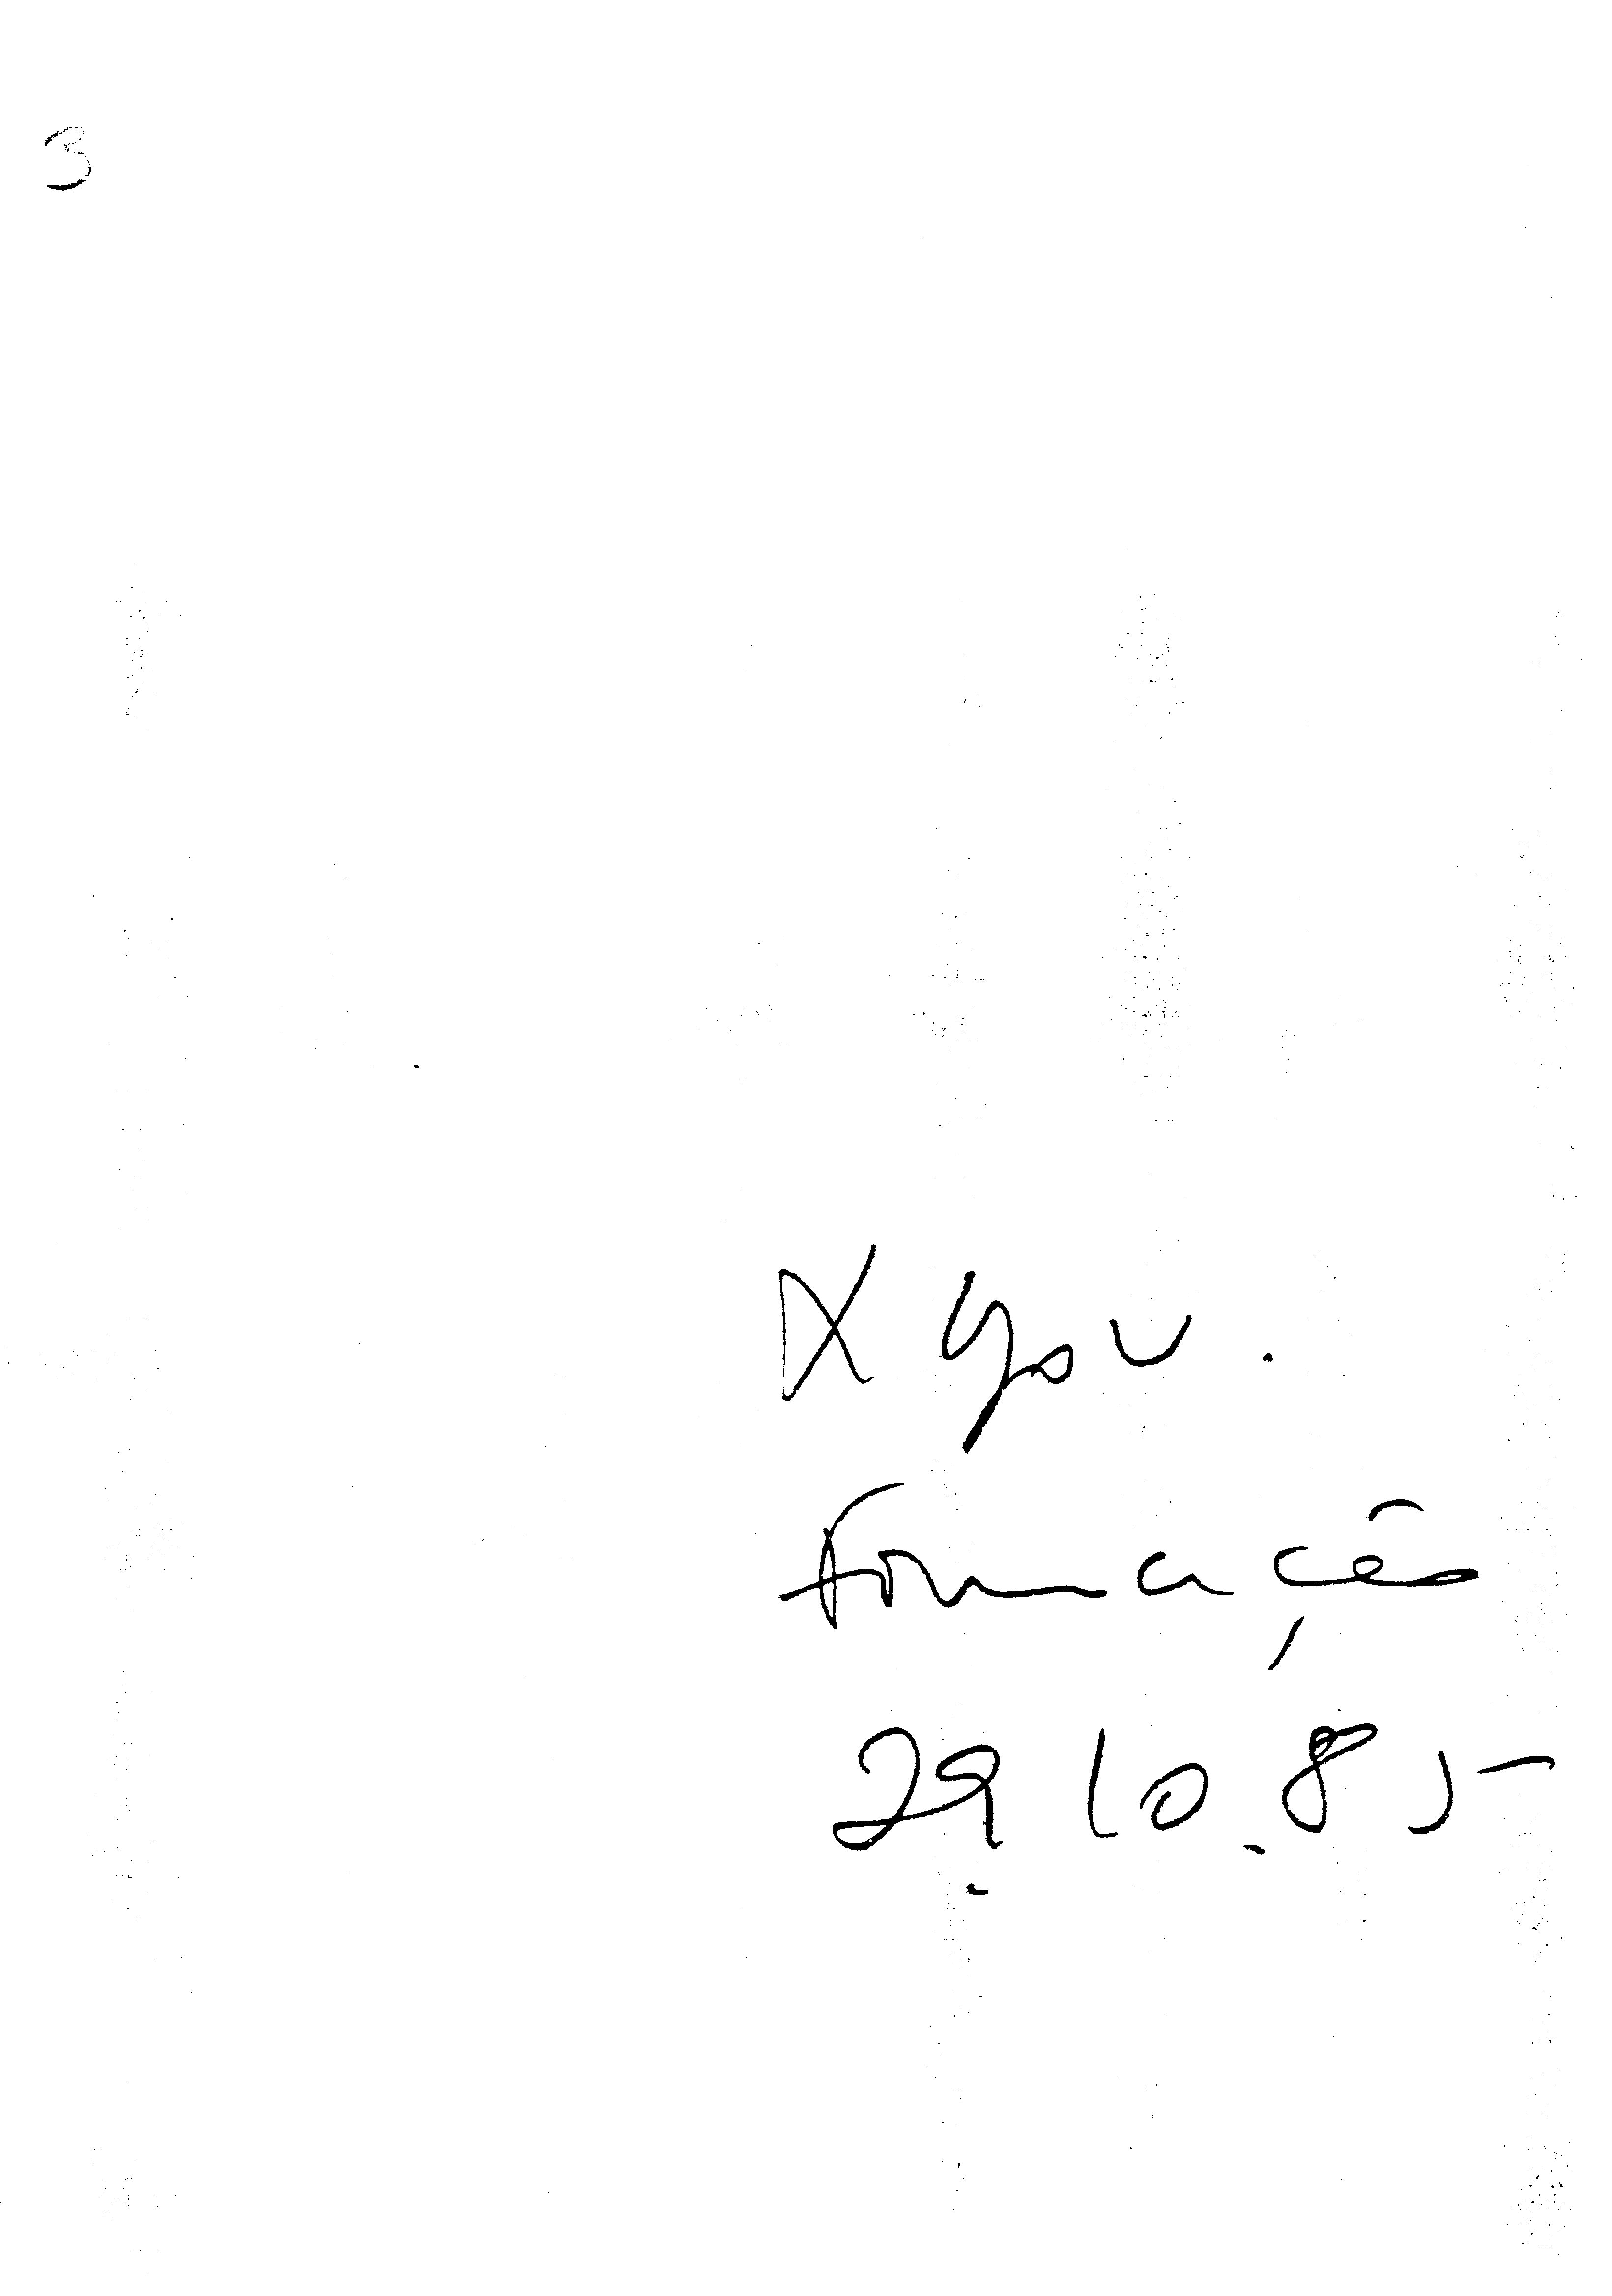 3
X Gov.
Formação
29.10.85